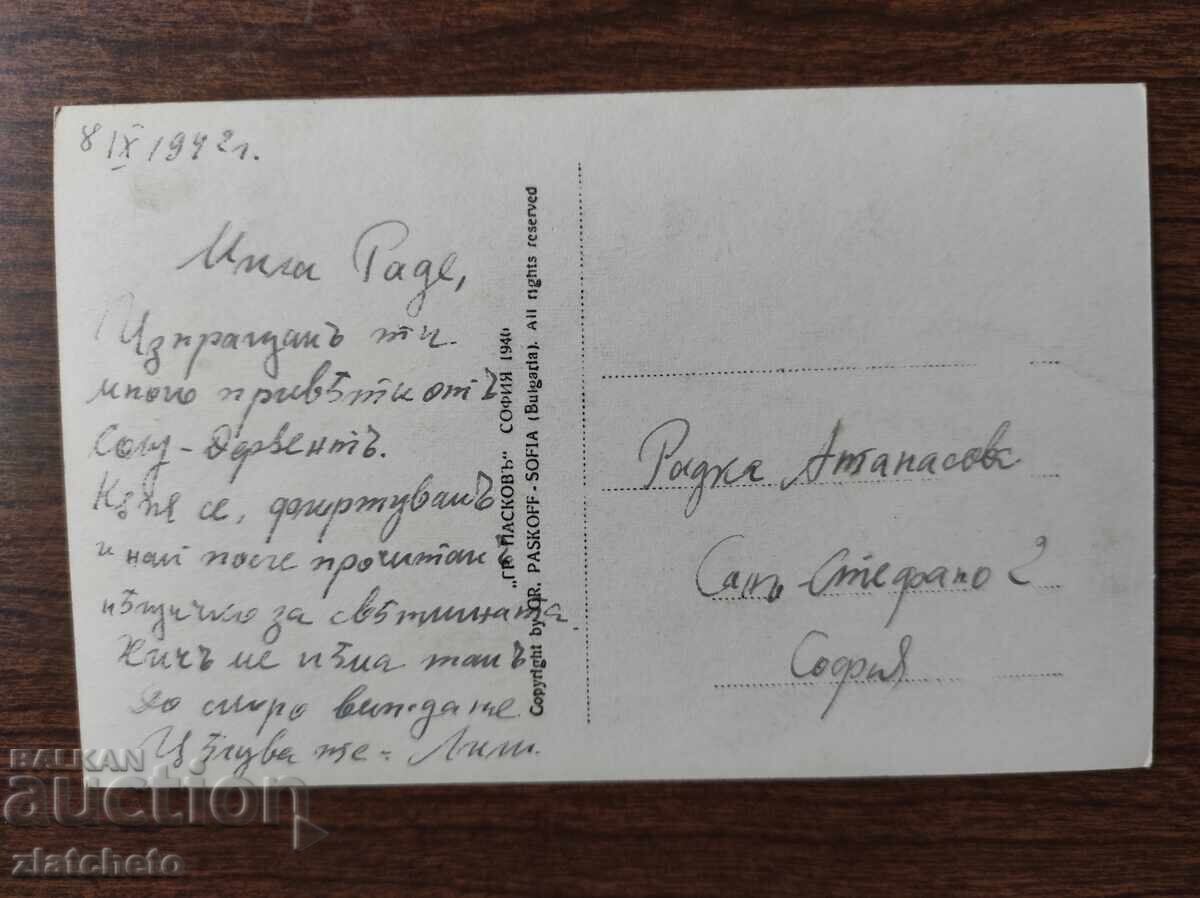 8 IX 1942 г.
Мила Раде,
Изпращамъ ти
много привѣти отъ
Соуу-Дервентъ.
Кѫпя се, флиртувамъ
и най после прочитам
нѣщичко за свѣтлината
Хичъ ме нѣма там
До скоро виждане
Цѣлува те - Лили.
„ГР. ПАСКОВЪ" СОФИЯ 1940
Copyright by GR. PASKOFF - SOFIA (Bulgaria). All rights reserved
Радка Атанасова
Санъ Стефано 2
София
BALKAN
auction
zlatcheto